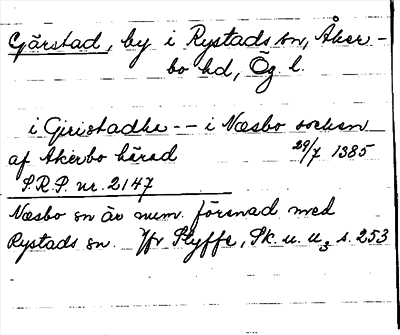 Gärstad, by i Rystads sn, Åker-
bo hd, Ög l.
i Giristadha -- i Næsbo sochsn
af Akerbo hærad 29/7 1385
S.R.P. nr. 2147
Næsbo sn är num. förenad med
Rystads sn. Jfr Styffe, Sk. u. u3 s. 253